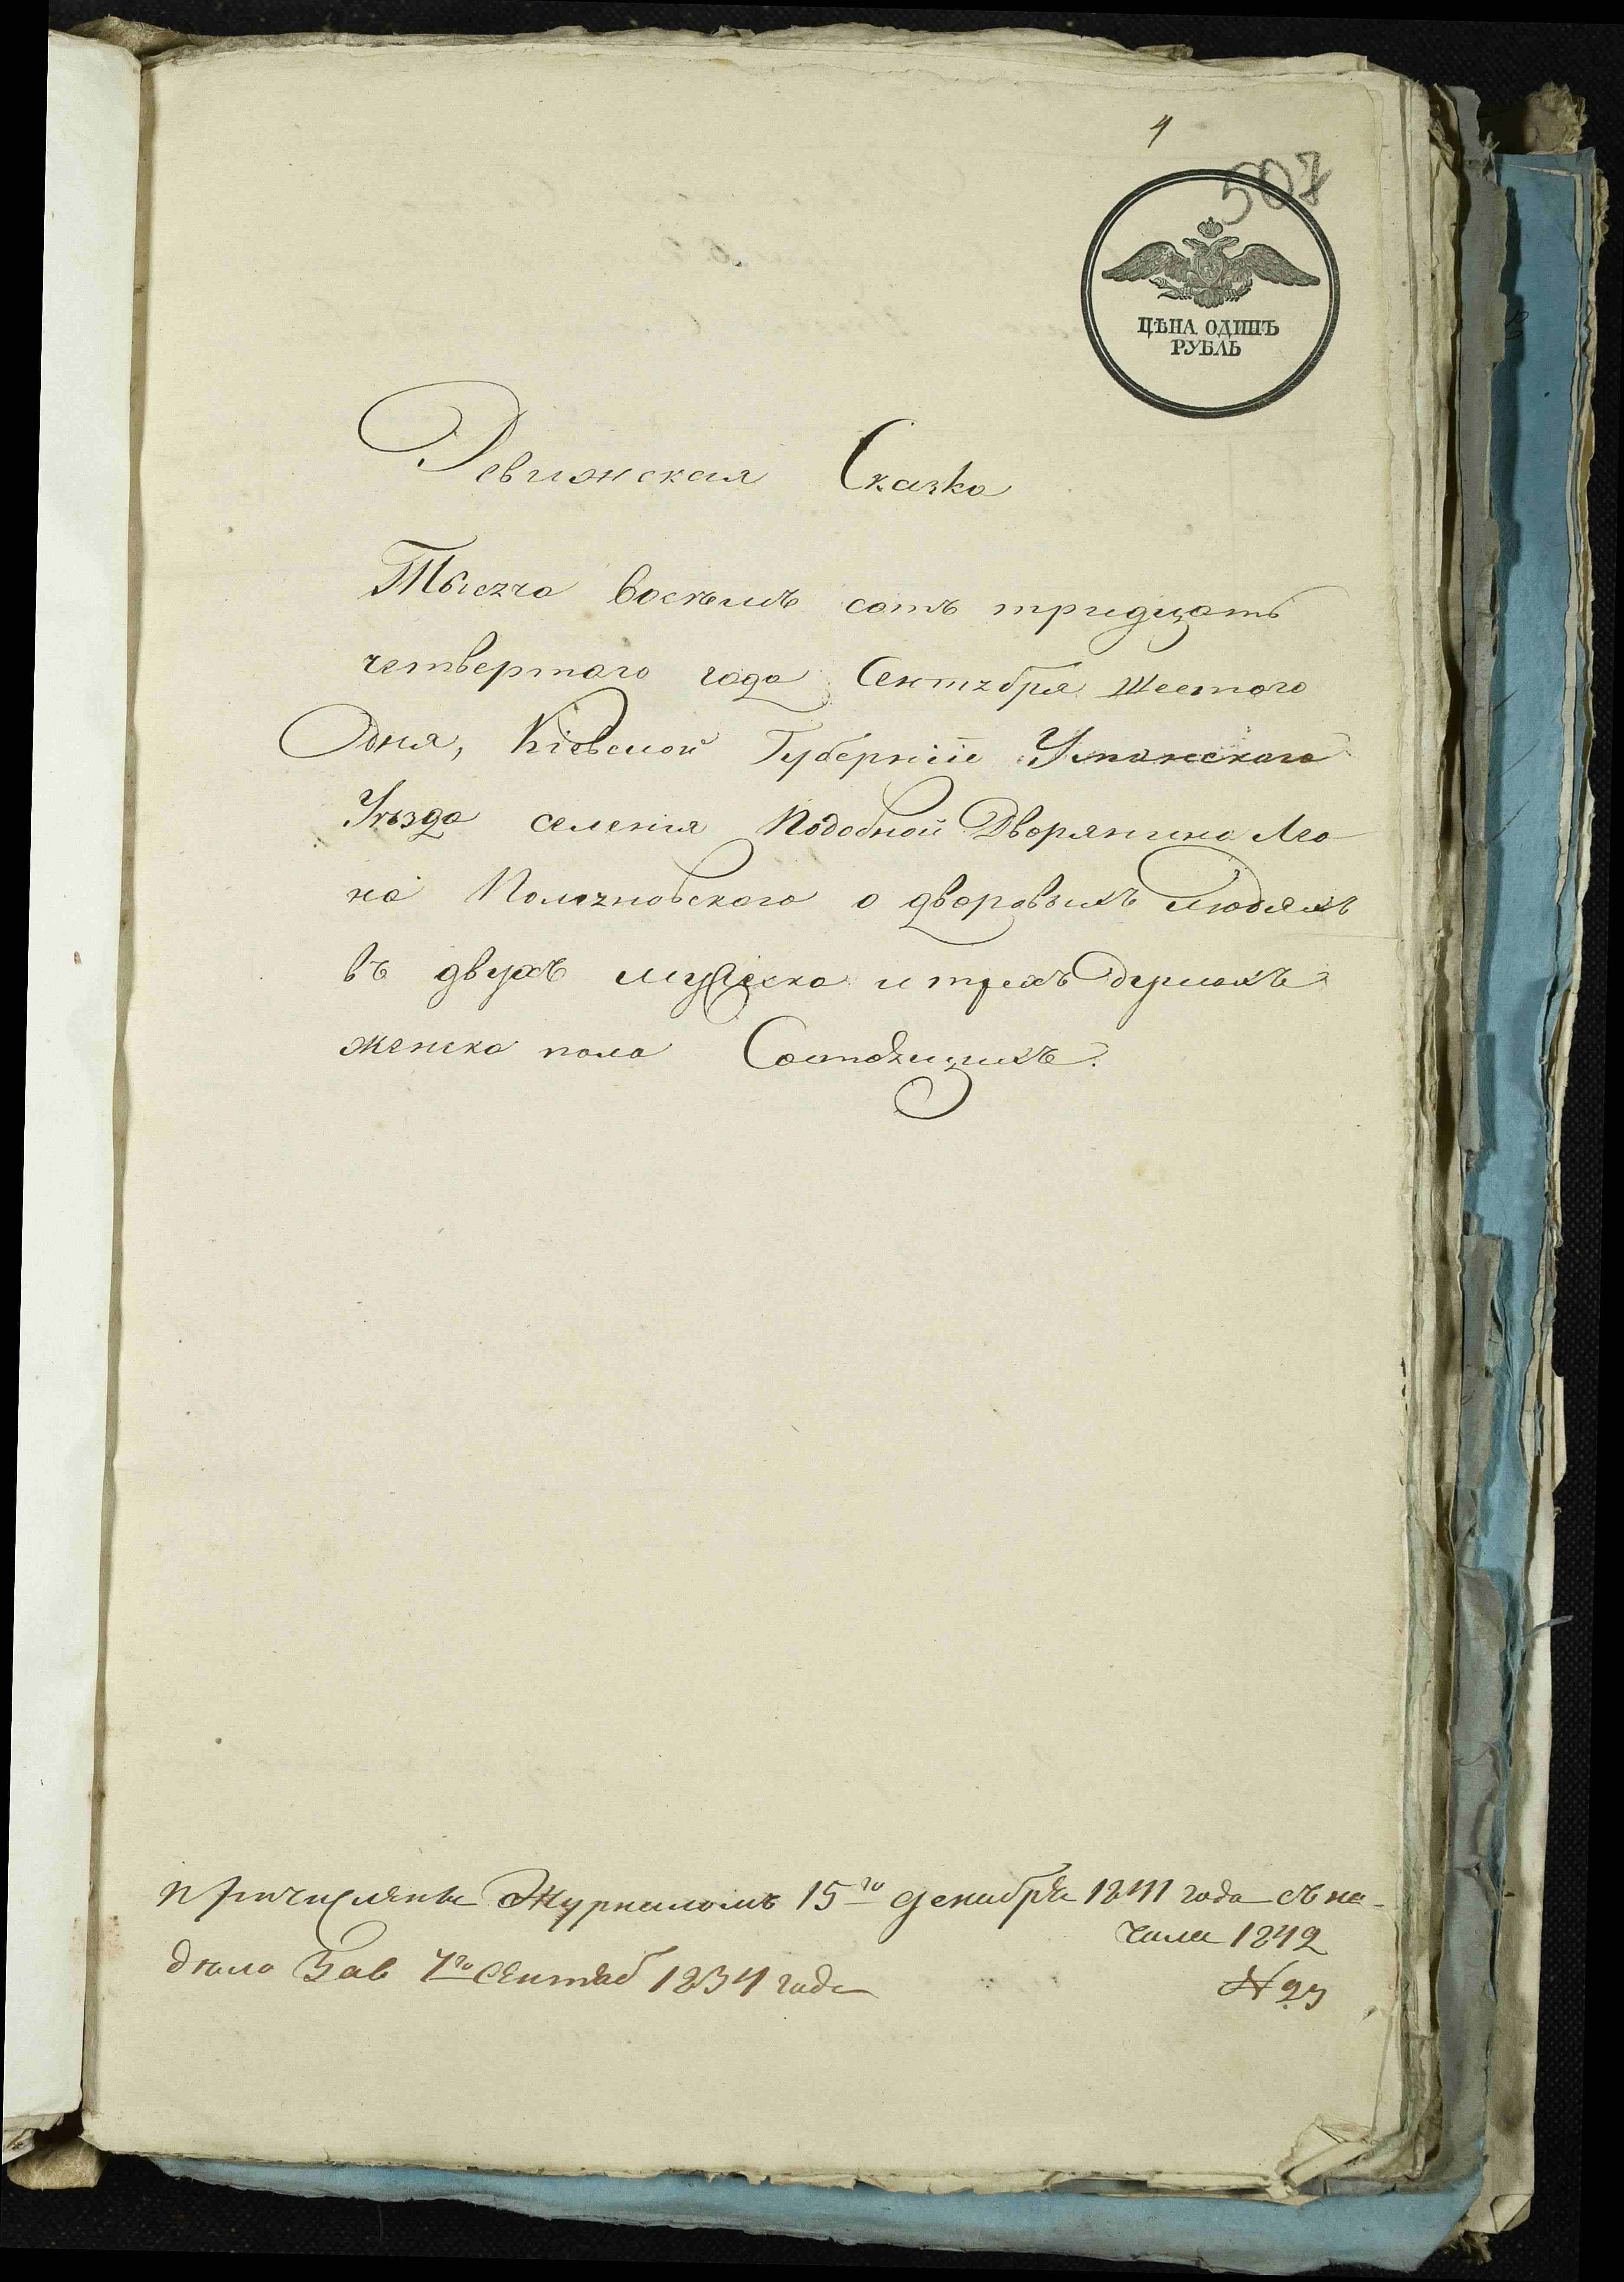 4
507
ЦѢНА ОДИНЪ
РУБЛЬ
Ревизская Сказка
Тысяча восемь сотъ тридцать
четвертаго года Сентября шестого
Дня, Кіевской Губерніи Уманскаго
Уѣзда селенія Подобной Дворянина Лео-
на о дворовыхъ Людяхъ
въ двухъ мужеска и трехъ душахъ
женска пола Состоящихъ.
Причислены Журналомъ 15го декабря 1841 года съ на-
чала 1842
дѣло Зав 7го Сентяб 1834 года
№ 23